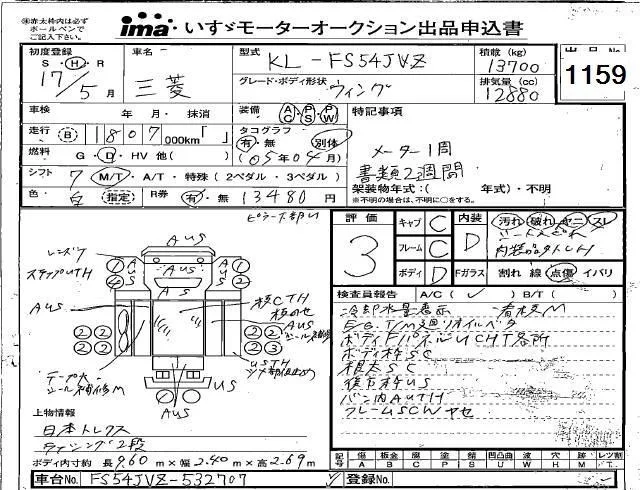 ※赤太枠内は必ず
ボールペンで
ご記入下さい。
ima いすゞモーターオークション出品申込書
初度登録
S・H・R
17/5月
車名
三菱
型式
KL-FS54JVZ
グレード・ボディ形状
ウィング
積載(kg)
13700
排気量(cc)
12880
1159
車検 年・月・抹消
装備 AC PS PW
走行 B 1807 000km「 」
タコグラフ
有・無 別体
燃料 G・D・HV 他( )
(05年04月)
シフト 7 M/T・A/T・特殊(2ペダル・3ペダル)
色 白 指定
R券 有・無 13480円
特記事項
メーター1周
書類2週間
架装物年式:( 年式)・不明
※不明の場合は、不明に○をする。
評価
3
キャブ C
フレーム C
ボディ D
内装 D
汚れ 破れ ヤニ スレ
Fガラス 割れ 線 点傷 イバリ
検査員報告 A/C( ✓ ) B/T( )
冷却水量表示 看板M
ボディ枠SC
根太SC
後方枠US
バン内AUTH
フレームSCWヤセ
AUS
ステップUTH
AUS
板CTH
AUS
USTH
US
AUS
上物情報
日本トレクス
ラッシング2段
ボディ内寸約 長9.60m×幅2.40m×高2.69m
記号 傷A 板金B 腐C 塗P 錆S 補修H 凹凸曲U 波W 穴X 跡M レッツ割T
車台No. FS54JVZ-532707
登録No.